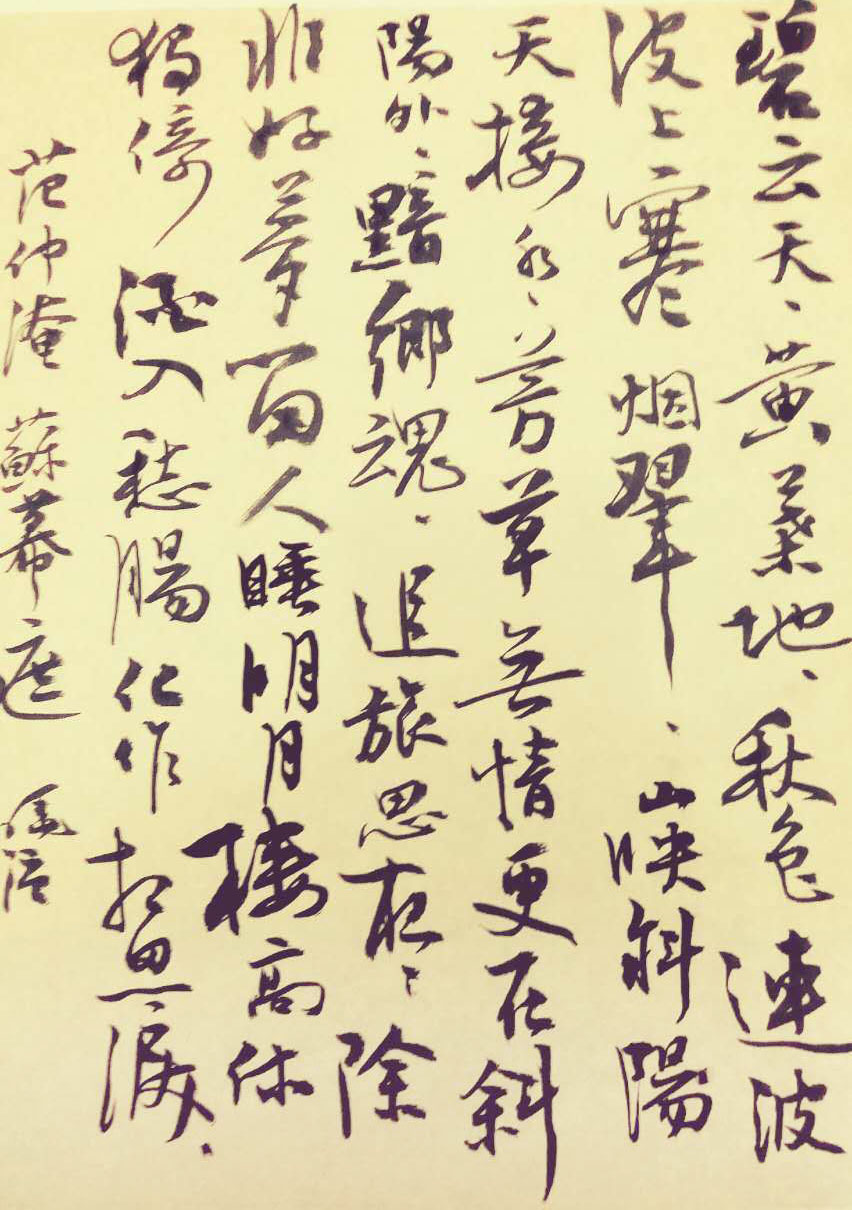 碧云天、黄葉地、秋色連波
波上寒烟翠、山映斜陽
天接水、芳草無情更在斜
陽外、黯鄉魂、追旅思夜、除
非好夢留人睡明月楼高休
獨倚 酒入愁腸化作相思淚、
范仲淹 蘇幕遮